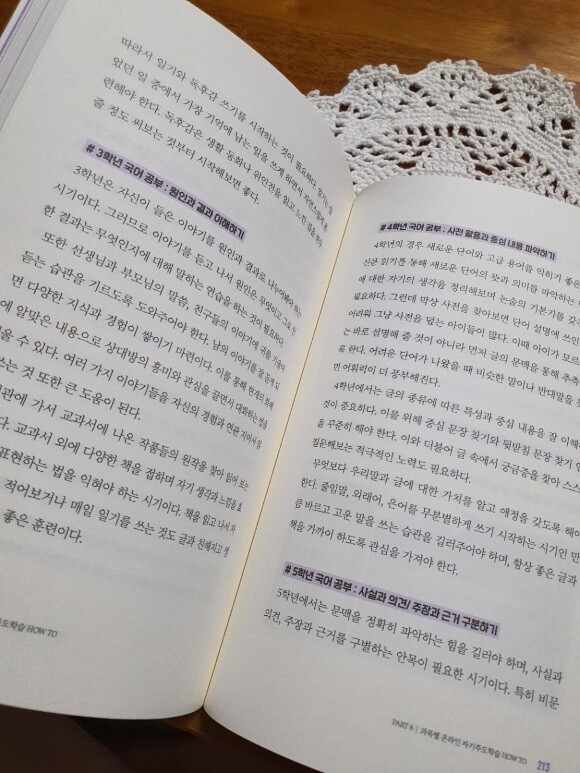 따라서 일기와 독후감 쓰기를 시작하는 것이 필요하다. 일기는
있었던 일 중에서 가장 기억에 남는 일을 쓰게 하면서 자연스럽게
련해야 한다. 독후감은 생활 동화나 위인전을 읽고 느낀 점을
줄 정도 써보는 것부터 시작해보면 좋다.
# 3학년 국어 공부 : 원인과 결과 이해하기
3학년은 자신이 들은 이야기를 원인과 결과로 나누어야 하는
시기이다. 그러므로 이야기를 듣고 나서 원인은 무엇이고 그로 인
한 결과는 무엇인지에 대해 말하는 연습을 하는 것이 필요하다.
또한 선생님과 부모님의 말씀, 친구들의 이야기에 귀를 기울여
듣는 습관을 기르도록 도와주어야 한다. 남의 이야기를 잘 듣게 되
면 다양한 지식과 경험이 쌓이기 마련이다. 이를 통해 현재의
에 알맞은 내용으로 상대방의 흥미와 관심을 끌면서 대화하는 법을
울 수 있다. 여러 가지 이야기들을 자신의 경험과 연관 지어서
쓰는 것 또한 큰 도움이 된다.
관에 가서 교과서에 나온 작품들의 원작을 찾아 읽어 보는
다. 교과서 외에 다양한 책을 접하며 자기 생각과 느낌을 효
표현하는 법을 익혀야 하는 시기이다. 책을 읽고 나서
적어보거나 매일 일기를 쓰는 것도 글과 친해지고 생
좋은 훈련이다.
주도학습 HOW TO
# 4학년 국어 공부 : 사전 활용과 중심 내용 파악하기
4학년의 경우 새로운 단어와 고급 용어를 익히기 좋은
신문 읽기를 통해 새로운 단어의 뜻과 의미를 파악하는
에 대한 자기의 생각을 정리해보며 논술의 기본기를
필요하다. 그런데 막상 사전을 찾아보면 단어 설명에 쓰인
어려워 그냥 사전을 덮는 아이들이 많다. 이때 아이가 모르
는 바로 설명해 줄 것이 아니라 먼저 글의 문맥을 통해 추측
록 한다. 어려운 단어가 나왔을 때 비슷한 말이나 반대말을
면 어휘력이 더 풍부해진다.
4학년에서는 글의 종류에 따른 특성과 중심 내용을 잘 이해하
것이 중요하다. 이를 위해 중심 문장 찾기와 뒷받침 문장 찾기
을 꾸준히 해야 한다. 이와 더불어 글 속에서 궁금증을 찾아 스스
질문해보는 적극적인 노력도 필요하다.
무엇보다 우리말과 글에 대한 가치를 알고 애정을 갖도록 해야
한다. 줄임말, 외래어, 은어를 무분별하게 쓰기 시작하는 시기인 만
큼 바르고 고운 말을 쓰는 습관을 길러주어야 하며, 항상 좋은 글과
책을 가까이 하도록 관심을 가져야 한다.
# 5학년 국어 공부 : 사실과 의견/ 주장과 근거 구분하기
5학년에서는 문맥을 정확히 파악하는 힘을 길러야 하며, 사실과
의견, 주장과 근거를 구별하는 안목이 필요한 시기이다. 특히 비문
PART 6 | 과목별 온라인 자기주도학습 HOW TO
213